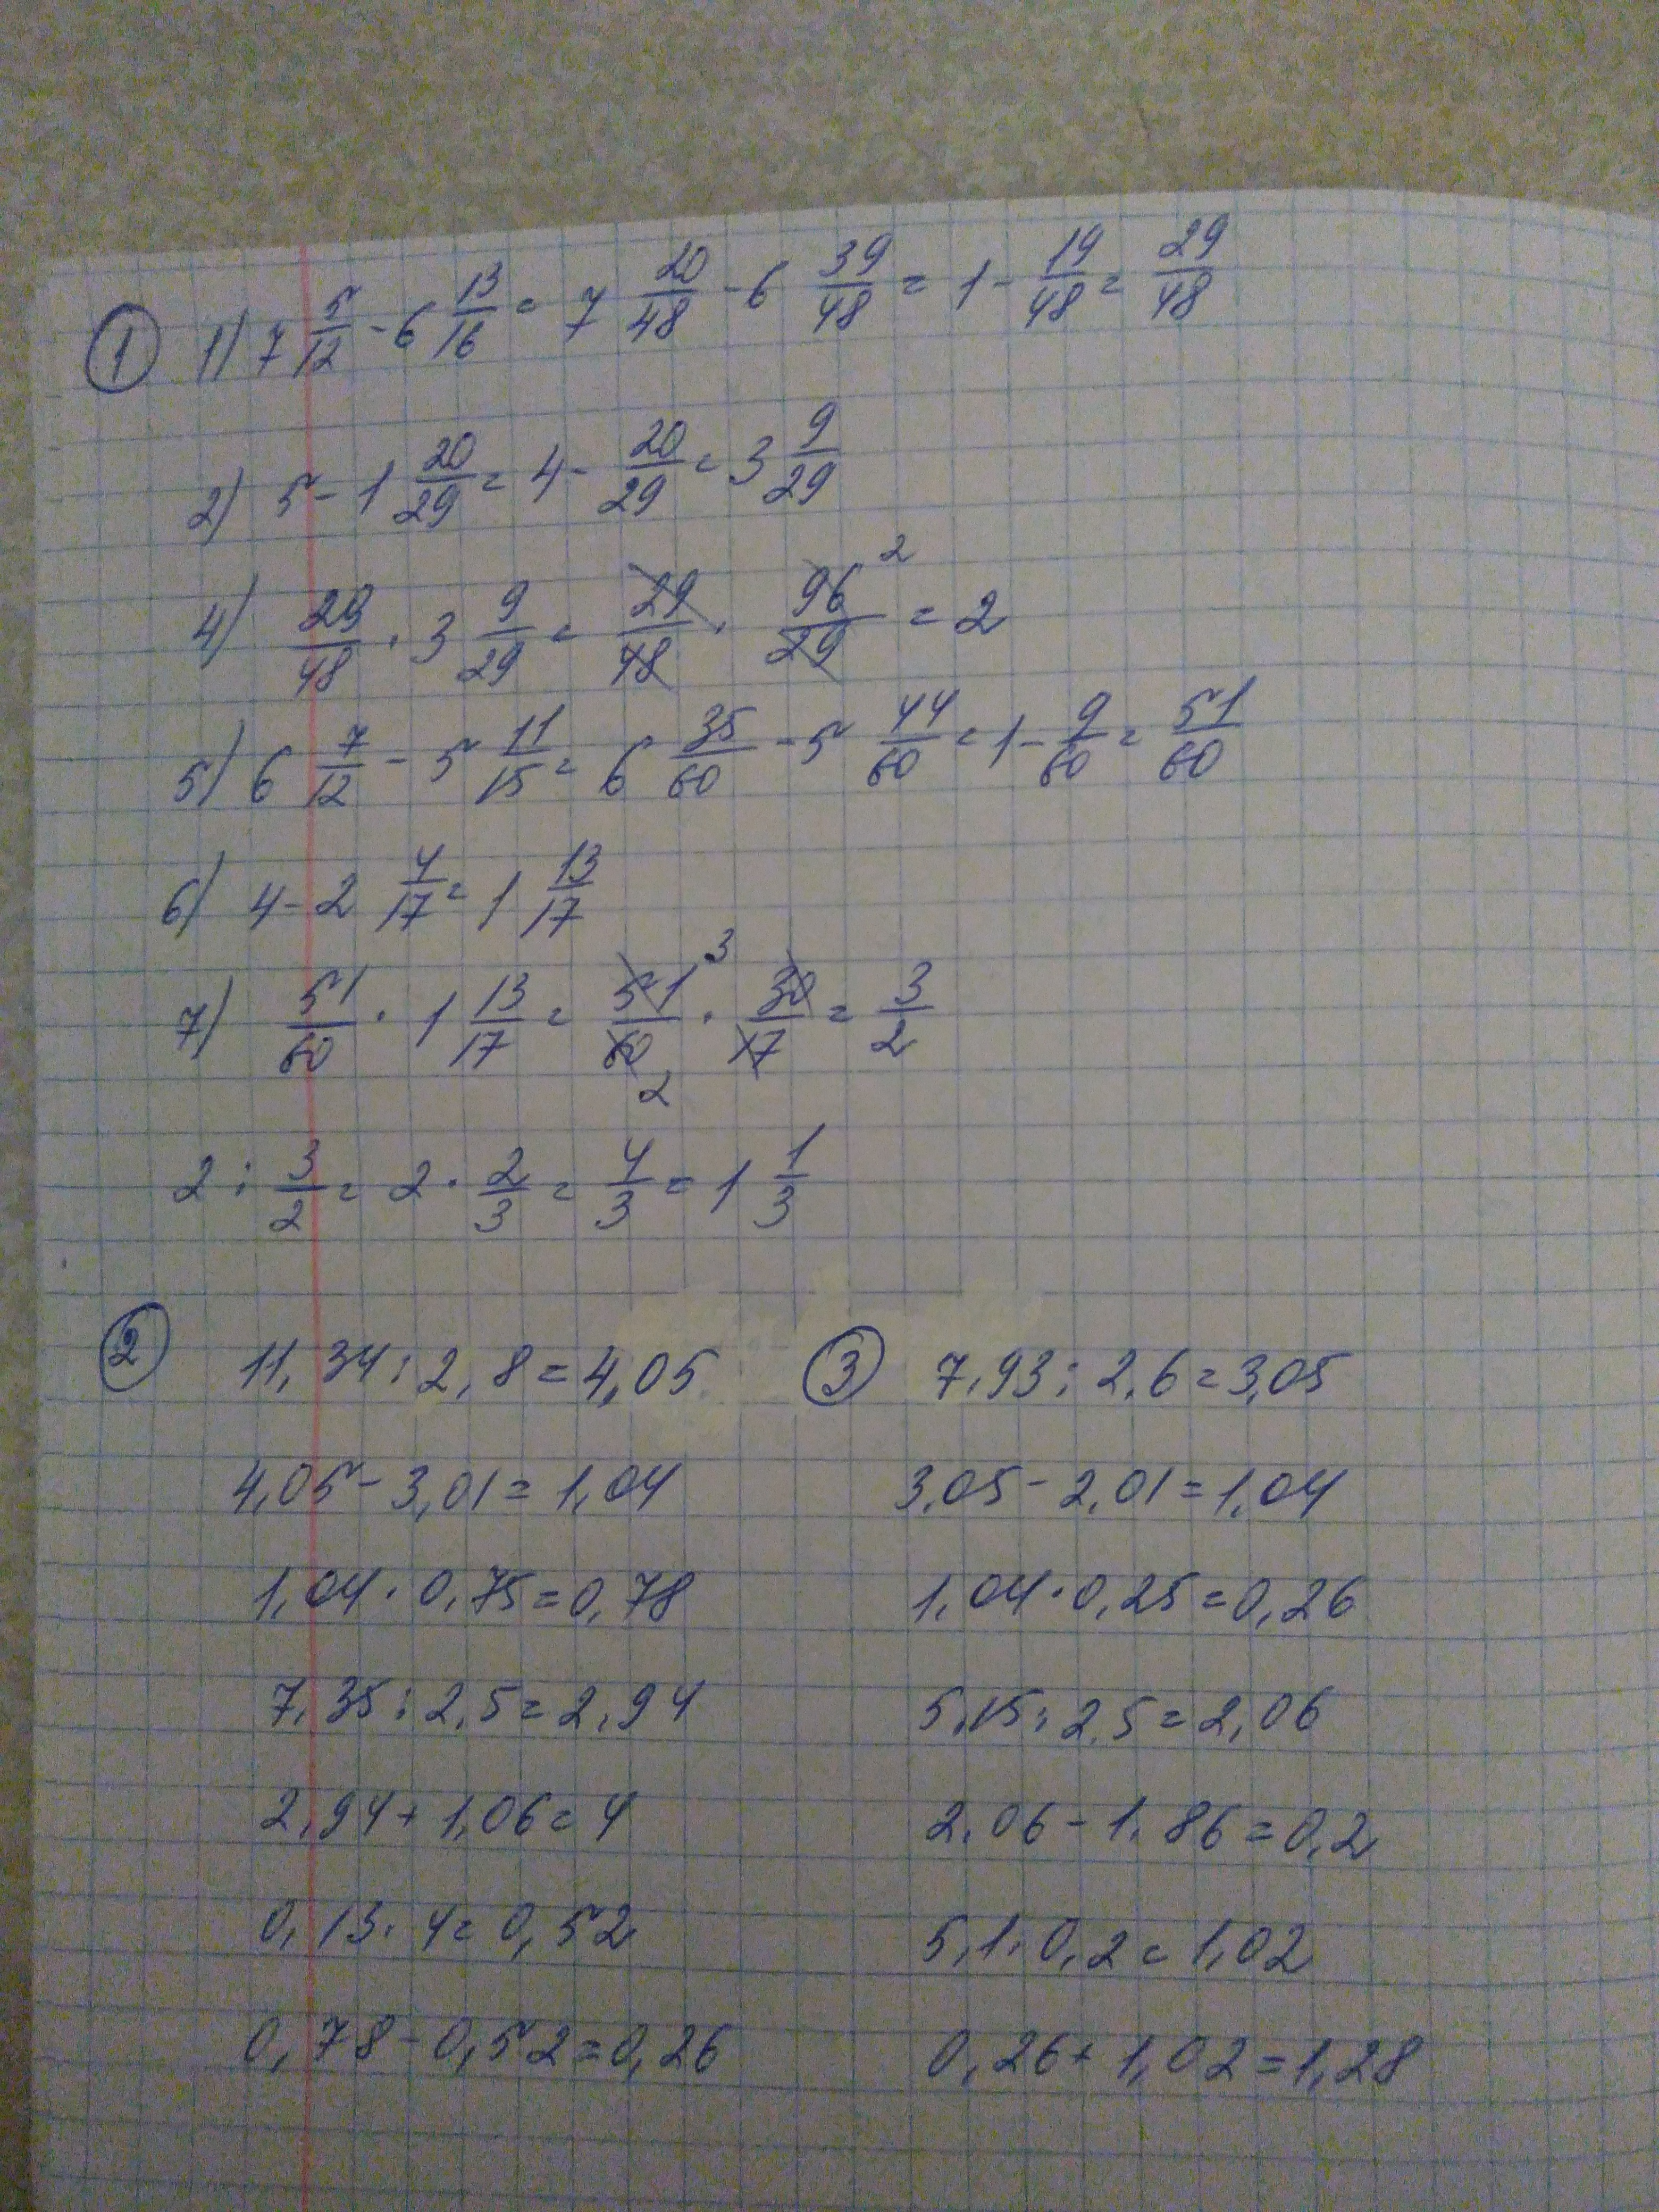 ① 1) 7 5/12 - 6 13/16 = 7 20/48 - 6 39/48 = 1 - 19/48 = 29/48
2) 5 - 1 20/29 = 4 - 20/29 = 3 9/29
4) 29/48 · 3 9/29 = 29/48 · 96/29 2 = 2
5) 6 7/12 - 5 11/15 = 6 35/60 - 5 44/60 = 1 - 9/60 = 51/60
6) 4 - 2 4/17 = 1 13/17
7) 51/60 · 1 13/17 = 51 3/60 2 · 30/17 = 3/2
2 : 3/2 = 2 · 2/3 = 4/3 = 1 1/3
② 11,34 : 2,8 = 4,05
4,05 - 3,01 = 1,04
1,04 · 0,75 = 0,78
7,35 : 2,5 = 2,94
2,94 + 1,06 = 4
0,13 · 4 = 0,52
0,78 - 0,52 = 0,26
③ 7,93 : 2,6 = 3,05
3,05 - 2,01 = 1,04
1,04 · 0,25 = 0,26
5,15 : 2,5 = 2,06
2,06 - 1,86 = 0,2
5,1 · 0,2 = 1,02
0,26 + 1,02 = 1,28